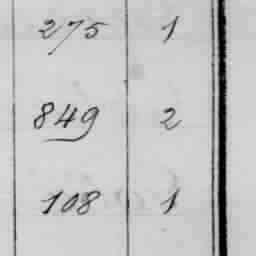 275 1
849 2
108 1